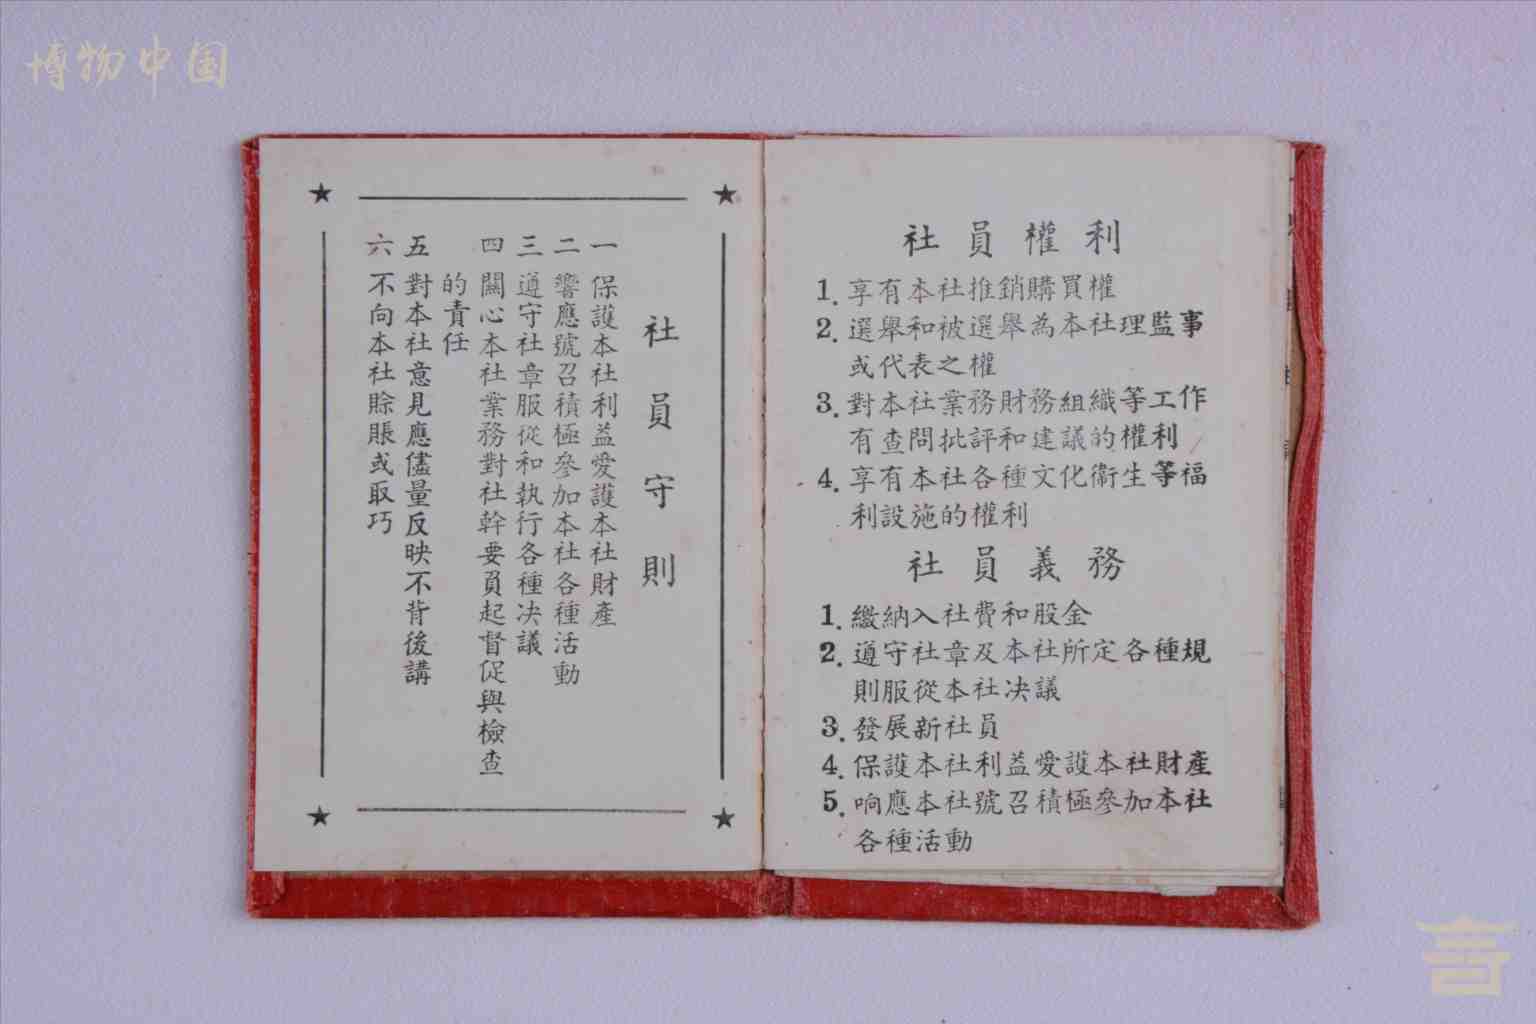 博物中国
社員守則
一 保護本社利益愛護本社財產
二 響應號召積極參加本社各種活動
三 遵守社章服從和執行各種決議
四 關心本社業務對社幹要負起督促與檢查
的責任
五 對本社意見應儘量反映不背後講
六 不向本社賒賬或取巧
社員權利
1. 享有本社推銷購買權
2. 選舉和被選舉為本社理監事
或代表之權
3. 對本社業務財務組織等工作
有查問批評和建議的權利
4. 享有本社各種文化衛生等福
利設施的權利
社員義務
1. 繳納入社費和股金
2. 遵守社章及本社所定各種規
則服從本社決議
3. 發展新社員
4. 保護本社利益愛護本社財產
5. 响應本社號召積極參加本社
各種活動